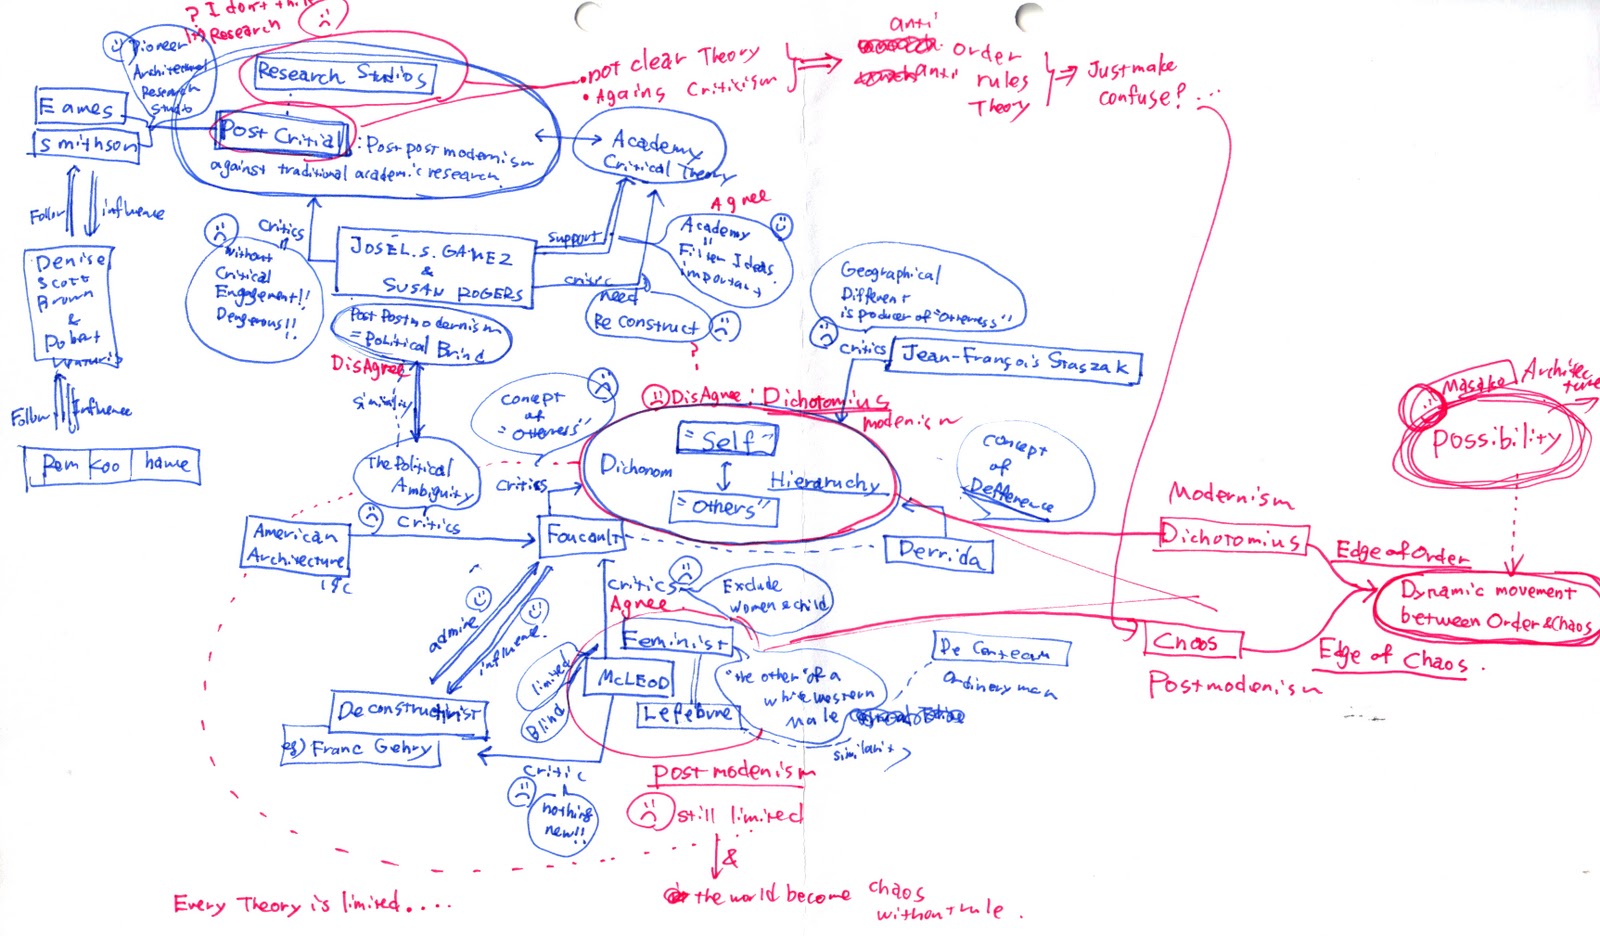 ? I don't thi
Research
Pioneer
Architectural
Research
Studio
Research Studios
Eames
Smithson
Post Critial
: Post post modernism
against traditional academic research.
Academy
Critical Theory
• not clear Theory
• Agains Criticism
anti
order
anti rules
Theory
Just make
confuse? ...
Follow
influence
Denise
Scott
Brown
&
Robert
Follow
Influence
Rem Koo hause
critics
without
Critical
Engagement!!
Dengerous!!
JOSÉL.S. GAMEZ
&
SUSAN ROGERS
support
critic
need
Re construct
?
Agree
Academy
=
Filter Ideas
important
Post Postmodernism
= Political Brind
DisAgree
similarity
The Political
Ambiguity
critics
American
Architecture
Geographical
Different
is producer of "Otherness"
critics
Jean-François Staszak
concept
of
"Otherness"
critics
DisAgree: Dichotomius
modenism
"Self"
Dichonom
Hierarchy
"Others"
concept
of
Defference
Derrida
Foucault
admire
influence.
critics
Agree
Exclude
women & child
Feminist
McLEOD
Lefebvre
limited
Blind
"the other" of a
white western
male
similarit
De Certeau
Ordinery man
Deconstructivist
eg) Franc Gehry
critic
nothing
new!!
post modenism
still limited
&
the world become chaos
without rule.
Every Theory is limited....
Modernism
Dichotomius
Edge of Order
Chaos
Postmodenism
Edge of Chaos.
Masako Architec
ture
Possibility
Dynamic movement
between Order & Chaos